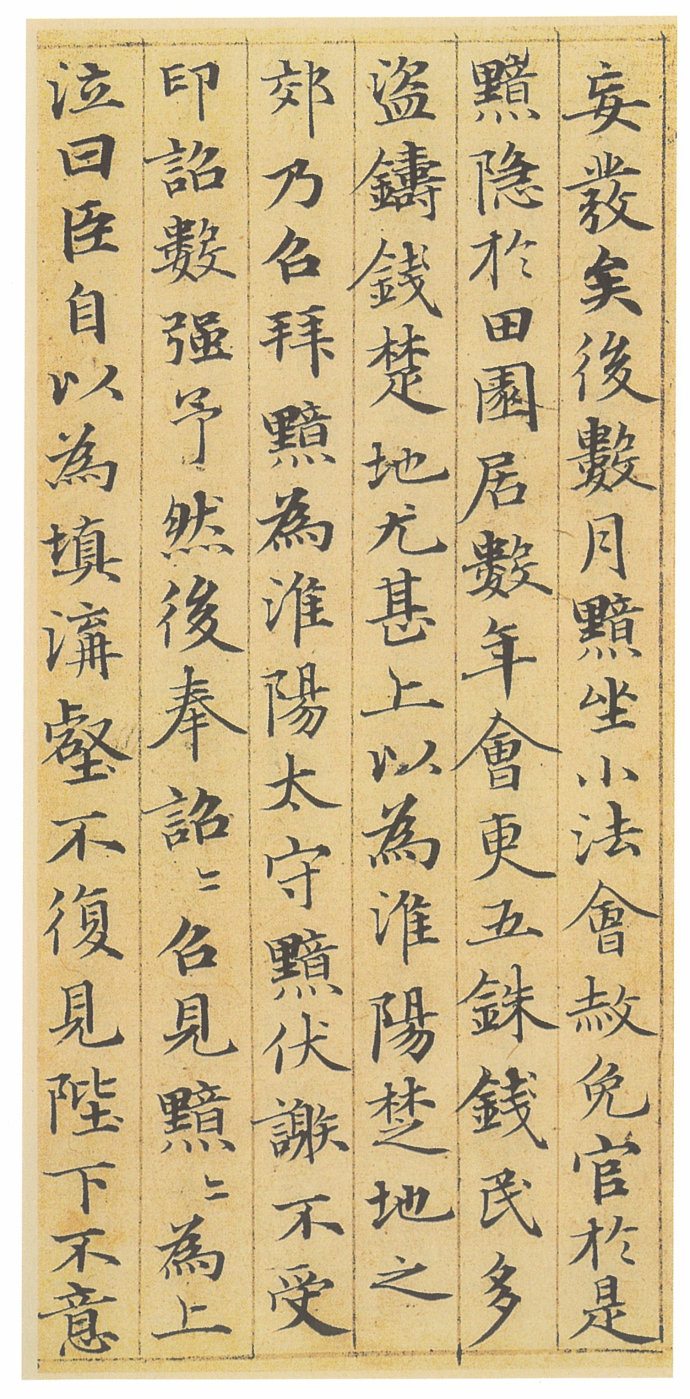 妄發矣後數月黯坐小法會赦免官於是
黯隐於田園居數年會更五銖錢民多
盜鑄錢楚地尤甚上以為淮陽楚地之
郊乃召拜黯為淮陽太守黯伏謝不受
印詔數强予然後奉詔〻召見黯〻為上
泣曰臣自以為填溝壑不復見陛下不意